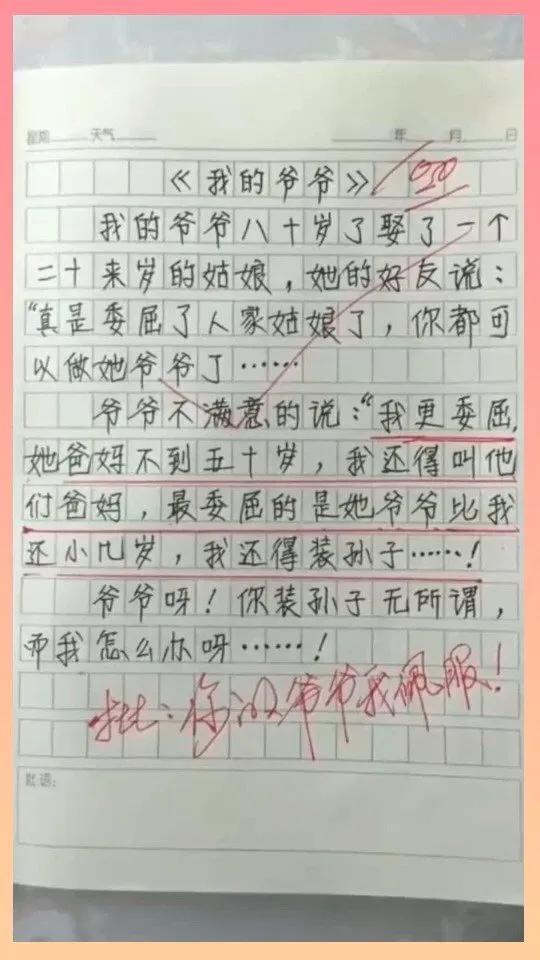 星期 天气 年 月 日
《我的爷爷》 100
我的爷爷八十岁了娶了一个
二十来岁的姑娘，她的好友说：
“真是委屈了人家姑娘了，你都可
以做她爷爷了……
爷爷不满意的说：“我更委屈，
她爸妈不到五十岁，我还得叫他
们爸妈，最委屈的是她爷爷比我
还小几岁，我还得装孙子……！
爷爷呀！你装孙子无所谓，
而我怎么办呀……！
批：你的爷爷我佩服！